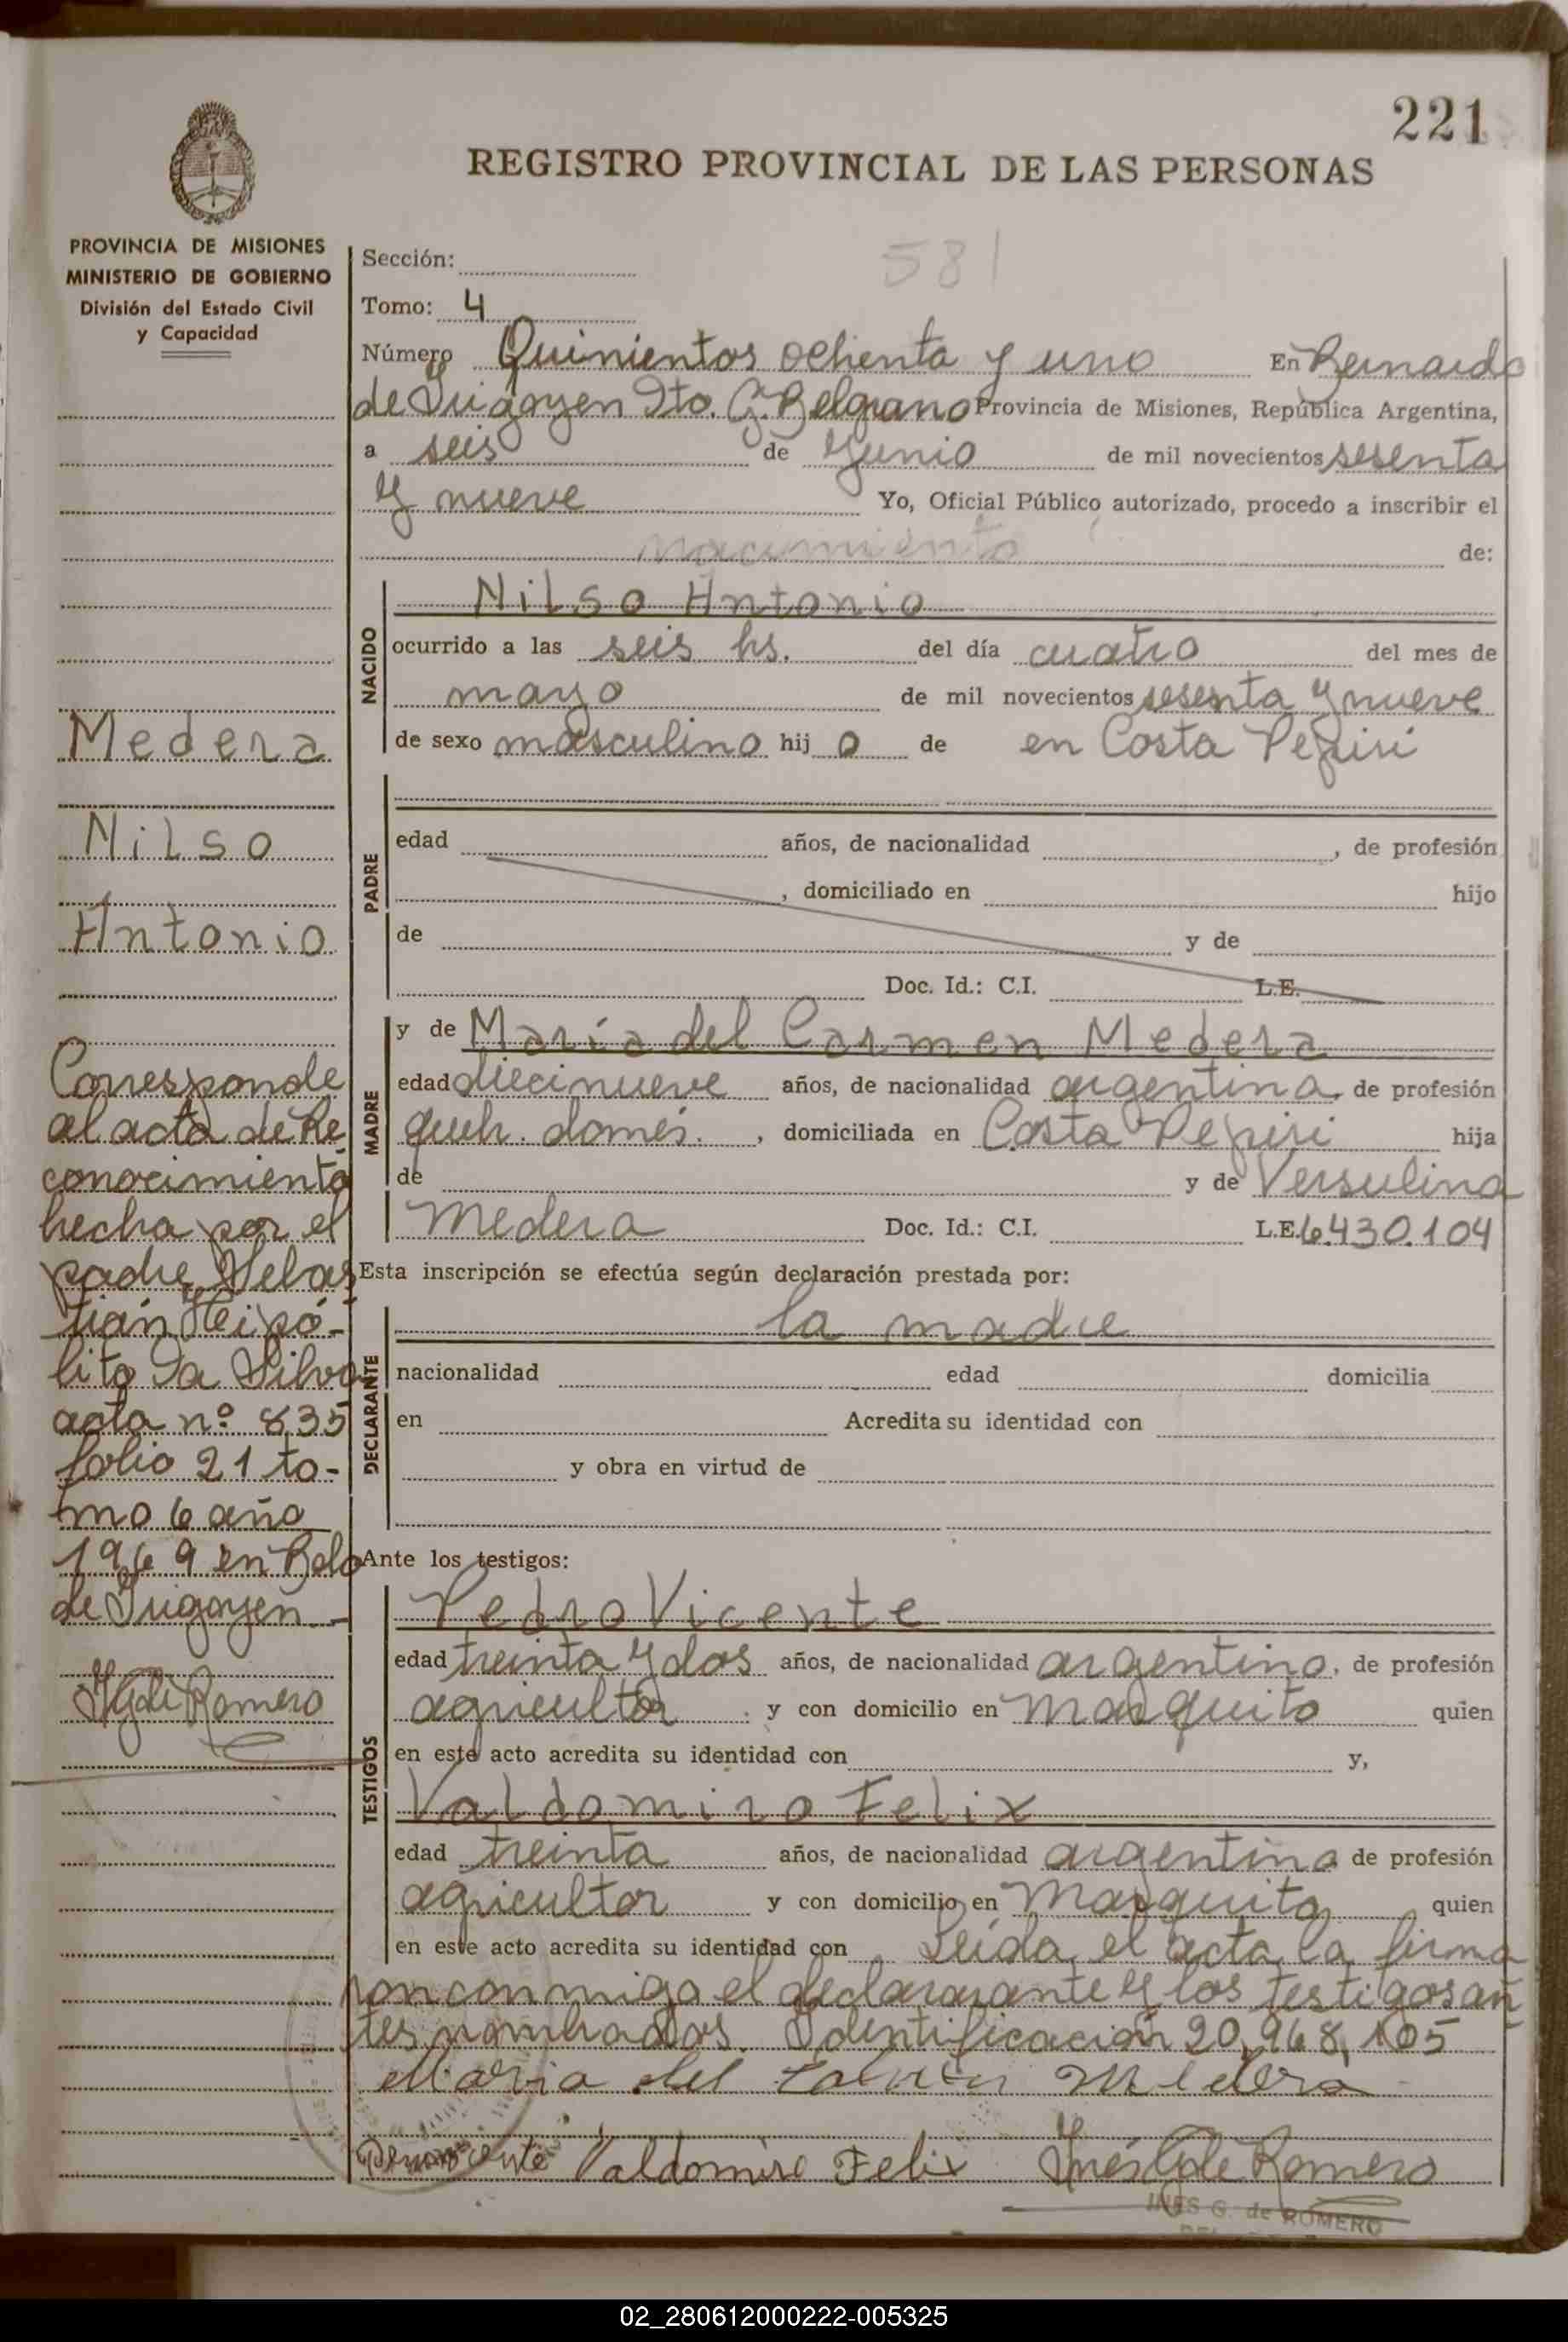 221
REGISTRO PROVINCIAL DE LAS PERSONAS
PROVINCIA DE MISIONES
MINISTERIO DE GOBIERNO
División del Estado Civil
y Capacidad
Medera
Nilso
Antonio
Corresponde
al acta de Re
conocimiento
hecha por el
padre Sebas
tián Heipó-
lito Da Silva
acta nº 835
folio 21 to-
mo 6 año
1969 en Bdo
de Irigoyen -
IGde Romero
581
Sección:
Tomo: 4
Número Quinientos ochenta y uno En Bernardo
de Irigoyen Dto. G. Belgrano Provincia de Misiones, República Argentina,
a seis de Junio de mil novecientos sesenta
y nueve Yo, Oficial Público autorizado, procedo a inscribir el
nacimiento de:
NACIDO
Nilso Antonio
ocurrido a las seis hs. del día cuatro del mes de
mayo de mil novecientos sesenta y nueve
de sexo masculino hij o de en Costa Pepiri
PADRE
edad años, de nacionalidad , de profesión
, domiciliado en hijo
de y de
Doc. Id.: C.I. L.E.
MADRE
y de María del Carmen Medera
edad diecinueve años, de nacionalidad argentina, de profesión
queh. domés. , domiciliada en Costa Pepiri hija
de y de Versulina
Medera Doc. Id.: C.I. L.E. 6.430.104
Esta inscripción se efectúa según declaración prestada por:
DECLARANTE
la madre
nacionalidad edad domicilia
en Acredita su identidad con
y obra en virtud de
Ante los testigos:
TESTIGOS
Pedro Vicente
edad treinta y dos años, de nacionalidad argentino, de profesión
agricultor y con domicilio en Marquito quien
en este acto acredita su identidad con y,
Valdomiro Felix
edad treinta años, de nacionalidad argentina de profesión
agricultor y con domicilio en Marquito quien
en este acto acredita su identidad con Leida el acta la firma
ron conmigo el declararante y los testigos an
tes nombrados. Identificación 20,968,105
Maria del Carmen Medera
Valdomiro Felix Inés Gde Romero
INES G. de ROMERO
02_280612000222-005325